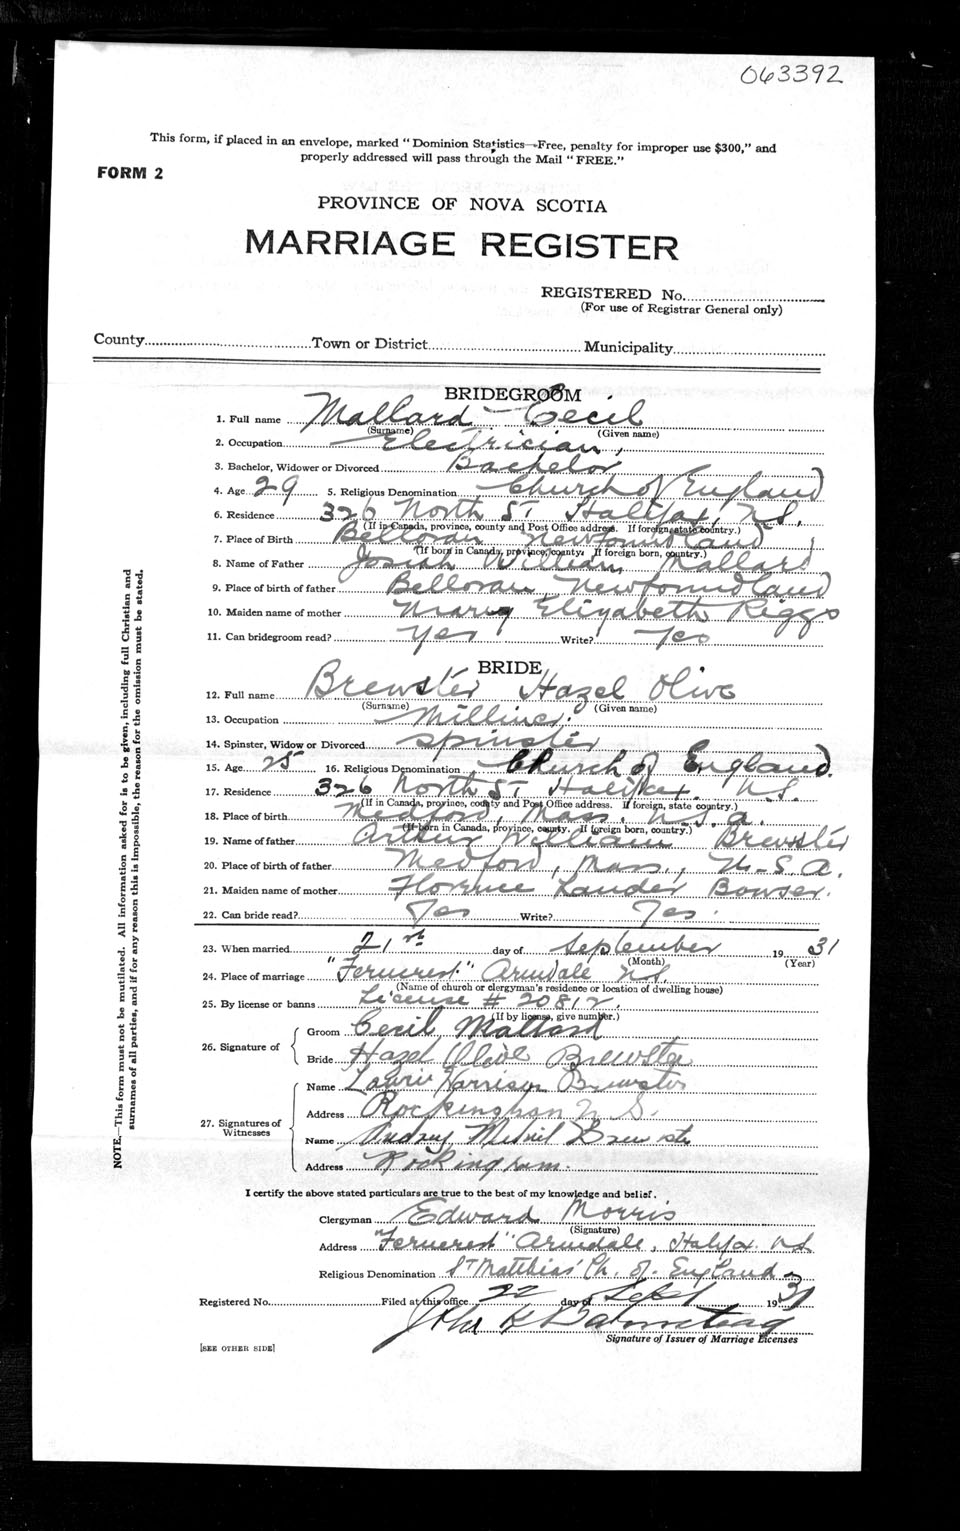 063392
This form, if placed in an envelope, marked "Dominion Statistics—Free, penalty for improper use $300," and
properly addressed will pass through the Mail "FREE."
FORM 2
PROVINCE OF NOVA SCOTIA
MARRIAGE REGISTER
REGISTERED No.
(For use of Registrar General only)
County Town or District Municipality
BRIDEGROOM
1. Full name Mallard Cecil
(Surname) (Given name)
2. Occupation Electrician,
3. Bachelor, Widower or Divorced Bachelor
4. Age 29 5. Religious Denomination Church of England
6. Residence 326 North St Halifax, N.S.
(If in Canada, province, county and Post Office address. If foreign, state country.)
7. Place of Birth Belloran Newfoundland
(If born in Canada, province, county. If foreign born, country.)
8. Name of Father Josiah William Mallard
9. Place of birth of father Belloran, Newfoundland
10. Maiden name of mother Mary Elizabeth Riggs
11. Can bridegroom read? Yes Write? Yes
BRIDE
12. Full name Brewster Hazel Olive
(Surname) (Given name)
13. Occupation Milliner.
14. Spinster, Widow or Divorced Spinster
15. Age 25 16. Religious Denomination Church of England.
17. Residence 326 North St Halifax. N.S.
(If in Canada, province, county and Post Office address. If foreign, state country.)
18. Place of birth Medford, Mass. U.S.A.
(If born in Canada, province, county. If foreign born, country.)
19. Name of father Arthur William Brewster
20. Place of birth of father Medford, Mass., U.S.A.
21. Maiden name of mother Florence Bowser.
22. Can bride read? Yes Write? Yes.
23. When married 21st day of September 1931
(Month) (Year)
24. Place of marriage "Ferncrest" Armdale N.S.
(Name of church or clergyman's residence or location of dwelling house)
25. By license or banns License # 20812.
(If by license, give number.)
26. Signature of
Groom Cecil Mallard
Bride Hazel Olive Brewster
27. Signatures of Witnesses
Name Laurie Harrison Brewster
Address Rockingham N.S.
Name Audrey Brewster
Address Rockingham.
I certify the above stated particulars are true to the best of my knowledge and belief.
Clergyman Edward Morris
(Signature)
Address "Ferncrest" Armdale, Halifax N.S.
Religious Denomination St Matthias' Ch. of England
Registered No. Filed at this office 22 day of Sept 1931
John
Signature of Issuer of Marriage Licenses
[SEE OTHER SIDE]
NOTE.—This form must not be mutilated. All information asked for is to be given, including full Christian and
surnames of all parties, and if for any reason this is impossible, the reason for the omission must be stated.